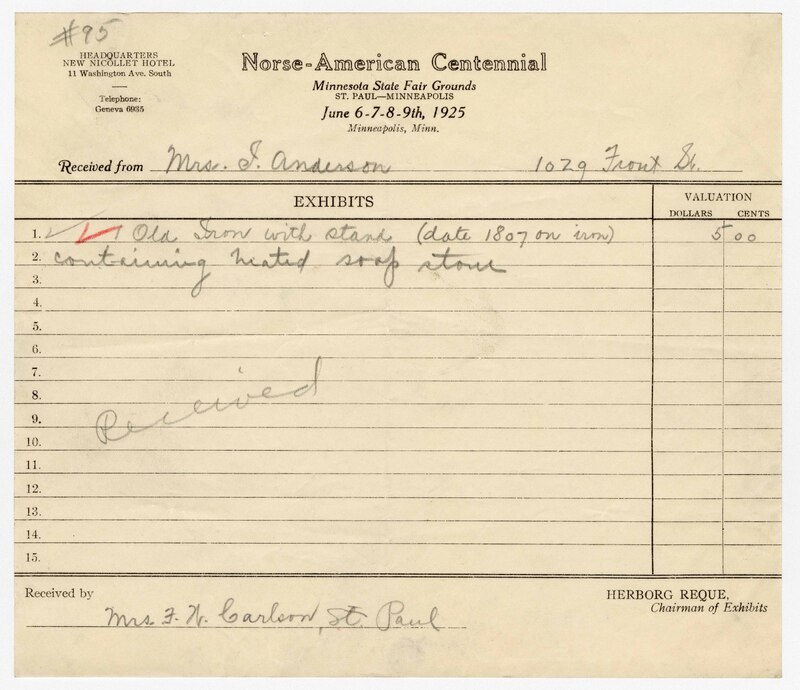 #95
HEADQUARTERS
NEW NICOLLET HOTEL
11 Washington Ave. South
Telephone:
Geneva 6935
Norse-American Centennial
Minnesota State Fair Grounds
ST. PAUL—MINNEAPOLIS
June 6-7-8-9th, 1925
Minneapolis, Minn.
Received from Mrs. I. Anderson 1029 Front St.
EXHIBITS VALUATION
DOLLARS CENTS
1. 1 Old Iron with stand (date 1807 on iron) 5 00
2. containing heated soap stone
3.
4.
5.
6.
7.
8.
Received
9.
10.
11.
12.
13.
14.
15.
Received by
Mrs. F. N. Carlson, St. Paul
HERBORG REQUE,
Chairman of Exhibits